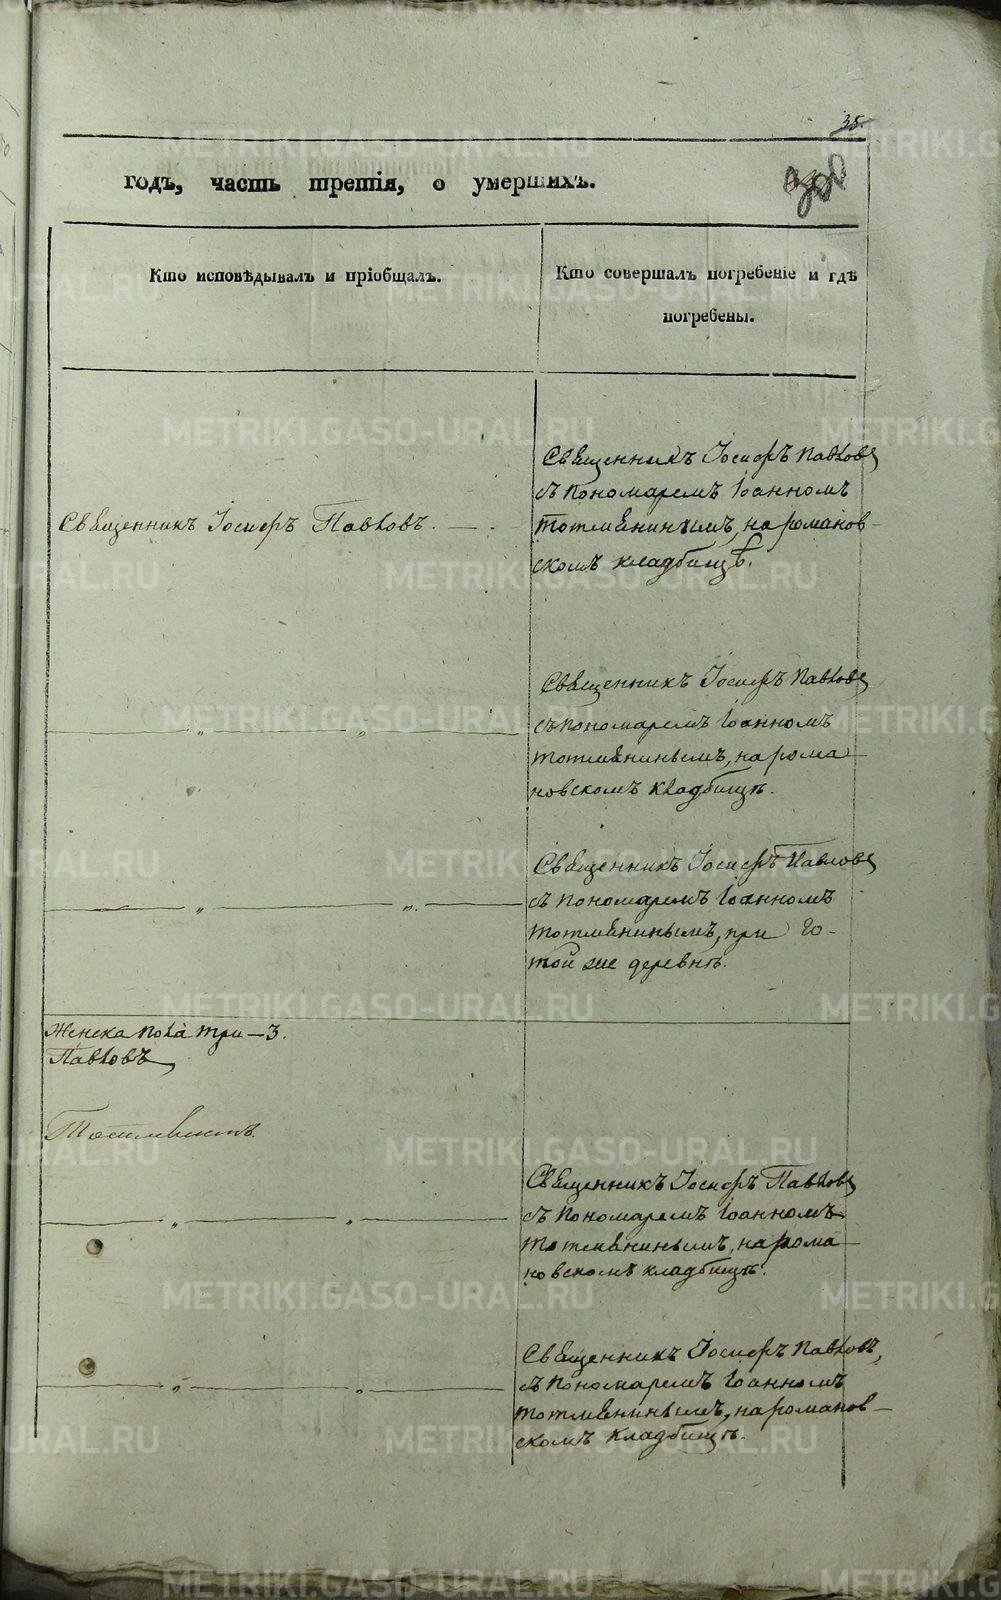 38.
годъ, часть третія, о умершихъ.
Кто исповѣдывалъ и пріобщалъ.
Кто совершалъ погребеніе и гдѣ
погребены.
Священникъ Іосифъ Павловъ.
Священникъ Іосифъ Павловъ
съ пономаремъ Іоанномъ
Тотмѣнинымъ, на романов-
скомъ кладбищѣ.
Священникъ Іосифъ Павловъ
съ пономаремъ Іоанномъ
Тотмѣнинымъ, на рома-
новскомъ кладбищѣ.
Священникъ Іосифъ Павловъ
съ пономаремъ Іоанномъ
Тотмѣнинымъ, при
той же деревнѣ.
Женска пола три – 3.
Павловъ
Священникъ Іосифъ Павловъ
съ пономаремъ Іоанномъ
Тотмѣнинымъ, на рома-
новскомъ кладбищѣ.
Священникъ Іосифъ Павловъ,
съ пономаремъ Іоанномъ
Тотмѣнинымъ, на романов-
скомъ кладбищѣ.
METRIKI.GASO-URAL.RU